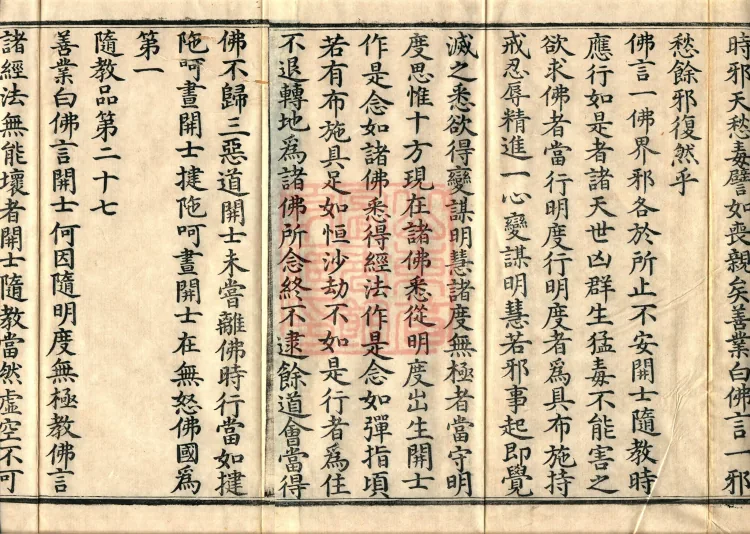 時邪天愁毒譬如喪親矣善業白佛言一邪
愁餘邪復然乎
佛言一佛界邪各於所止不安開士隨教時
應行如是者諸天世凶群生猛毒不能害之
欲求佛者當行明度行明度者為具布施持
戒忍辱精進一心變謀明慧若邪事起即覺
滅之悉欲得變謀明慧諸度無極者當守明
度思惟十方現在諸佛悉從明度出生開士
作是念如諸佛悉得經法作是念如彈指頃
若有布施具足如恒沙劫不如是行者為住
不退轉地為諸佛所念終不逮餘道會當得
佛不歸三惡道開士未嘗離佛時行當如揵
陁呵晝開士揵陁呵晝開士在無怒佛國為
第一
隨教品第二十七
善業白佛言開士何因隨明度無極教佛言
諸經法無能壞者開士隨教當然虛空不可